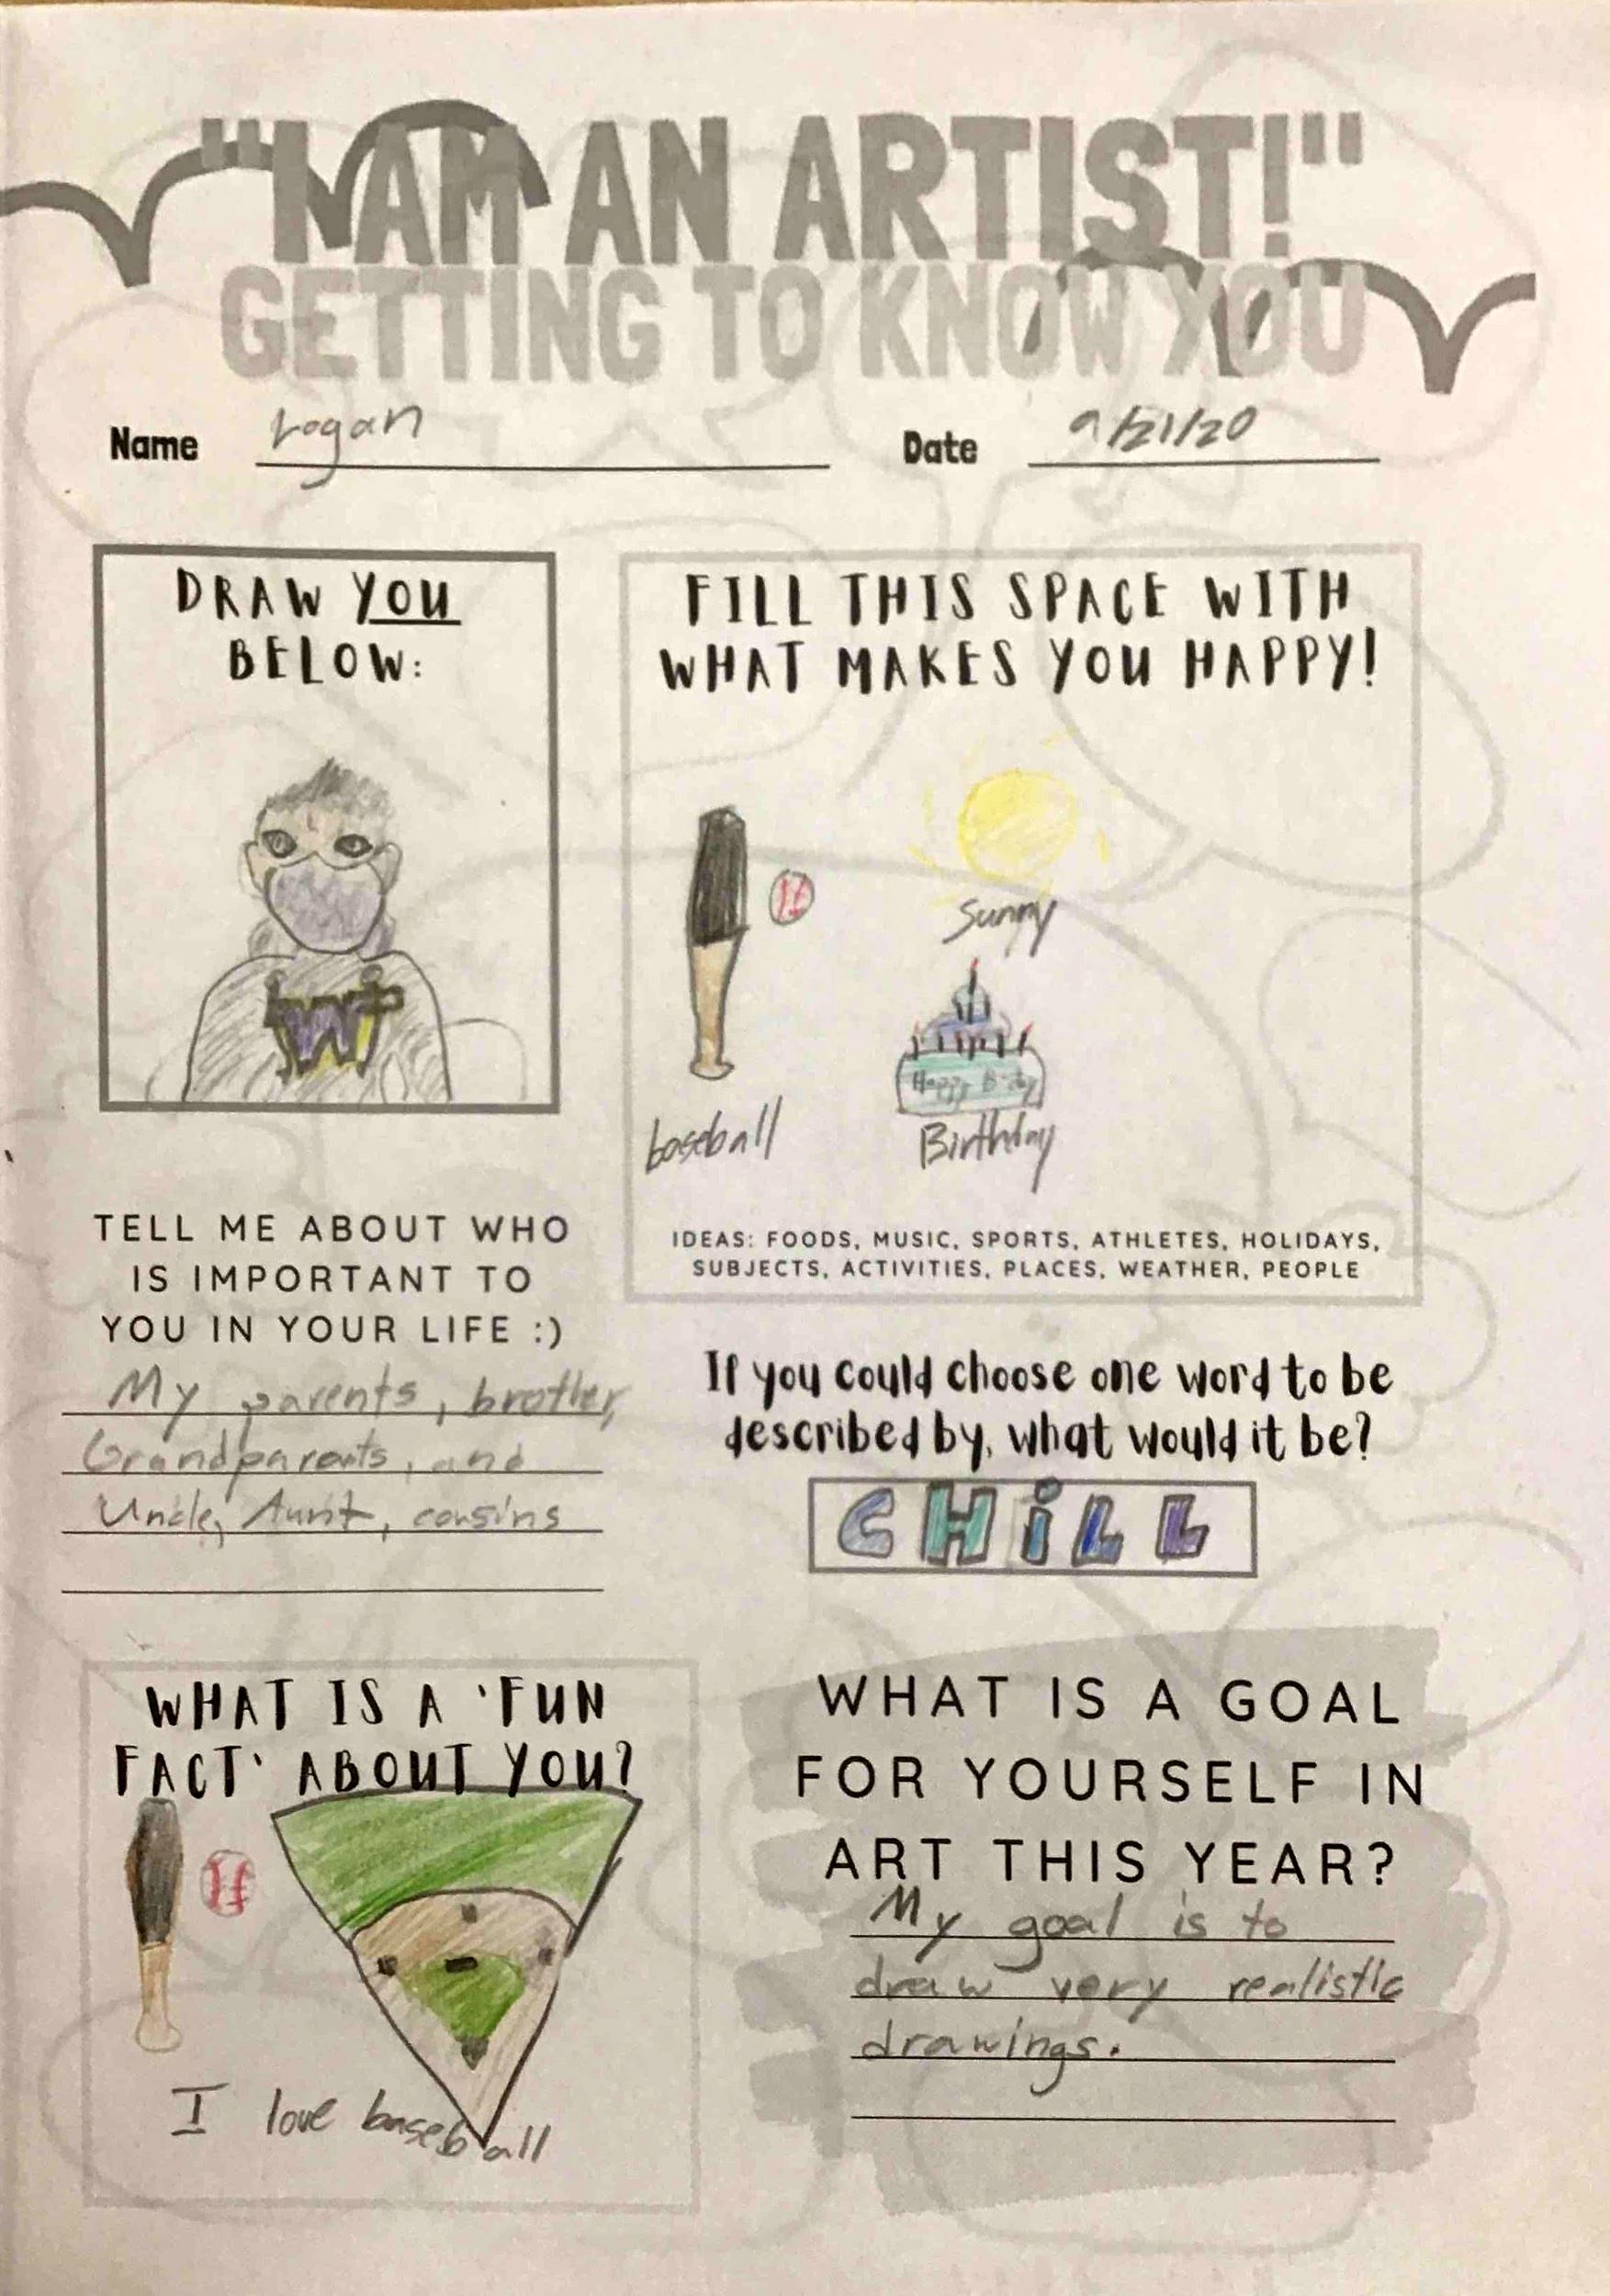 "I AM AN ARTIST!"
GETTING TO KNOW YOU
Name Logan Date 9/21/20
DRAW YOU
BELOW:
W
FILL THIS SPACE WITH
WHAT MAKES YOU HAPPY!
Sunny
Happy B-day
baseball
Birthday
IDEAS: FOODS, MUSIC, SPORTS, ATHLETES, HOLIDAYS,
SUBJECTS, ACTIVITIES, PLACES, WEATHER, PEOPLE
TELL ME ABOUT WHO
IS IMPORTANT TO
YOU IN YOUR LIFE :)
My parents, brother,
Grandparents, and
Uncle, Aunt, cousins
If you could choose one word to be
described by, what would it be?
CHiLL
WHAT IS A 'FUN
FACT' ABOUT YOU?
I love baseball
WHAT IS A GOAL
FOR YOURSELF IN
ART THIS YEAR?
My goal is to
draw very realistic
drawings.